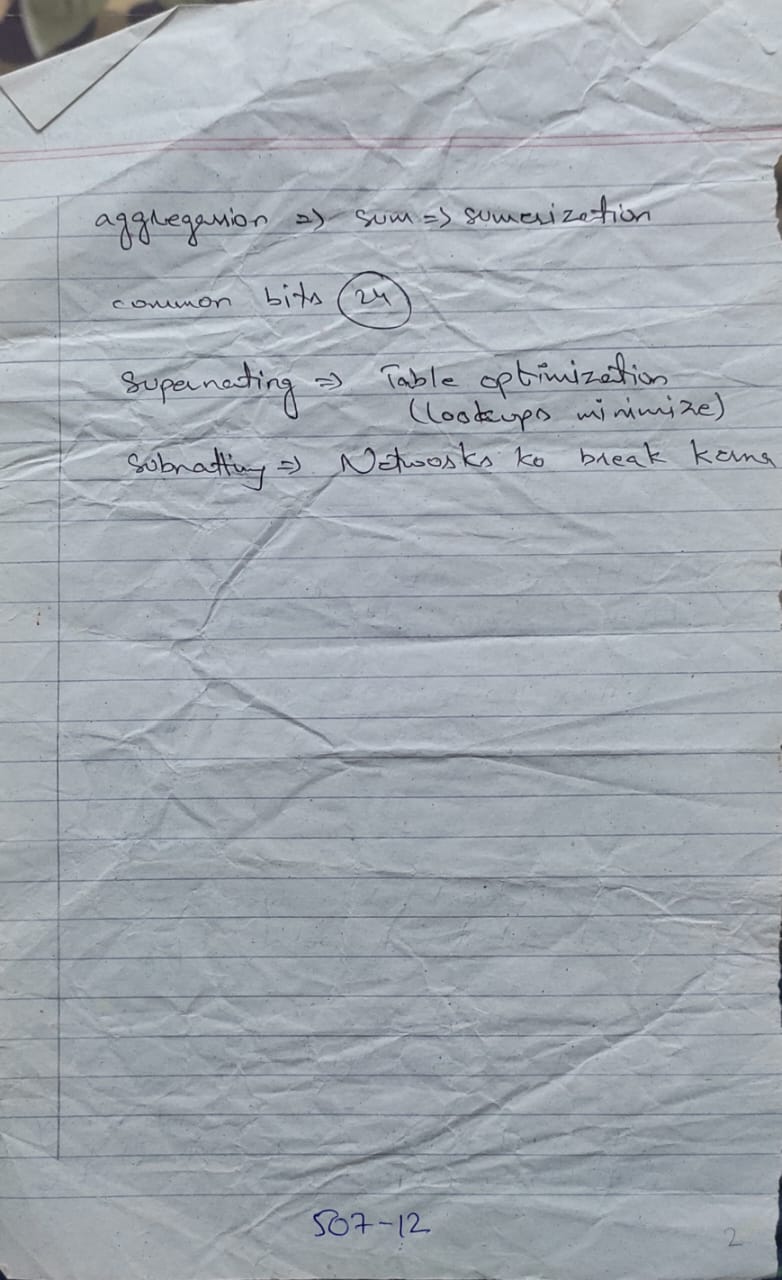 aggregassion => sum => sumerization
common bits 24
Supernating => Table optimization
(lookups minimize)
Subnatting => Networks ko break karna
507-12
2